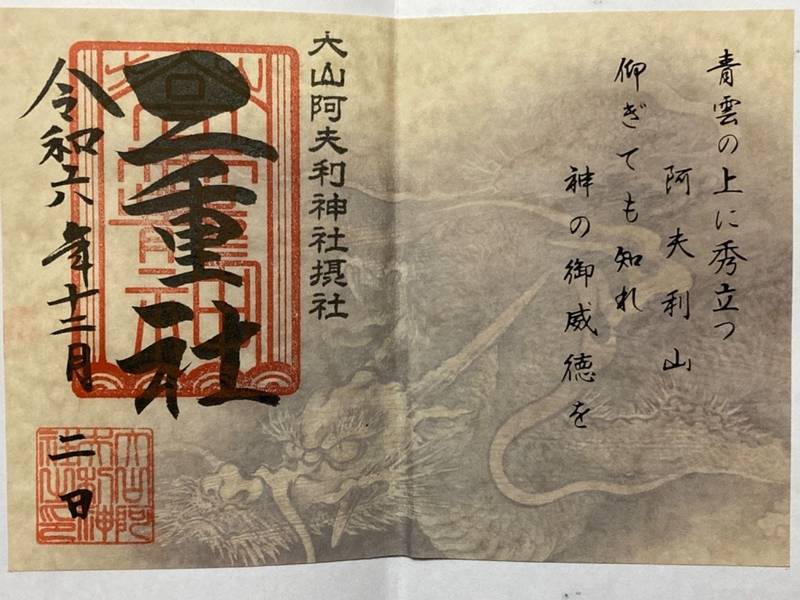 青雲の上に秀立つ
阿夫利山
仰ぎても知れ
神の御威徳を
大山阿夫利神社摂社
二重社
令和六年十二月二日
大山阿
夫利神
社之印